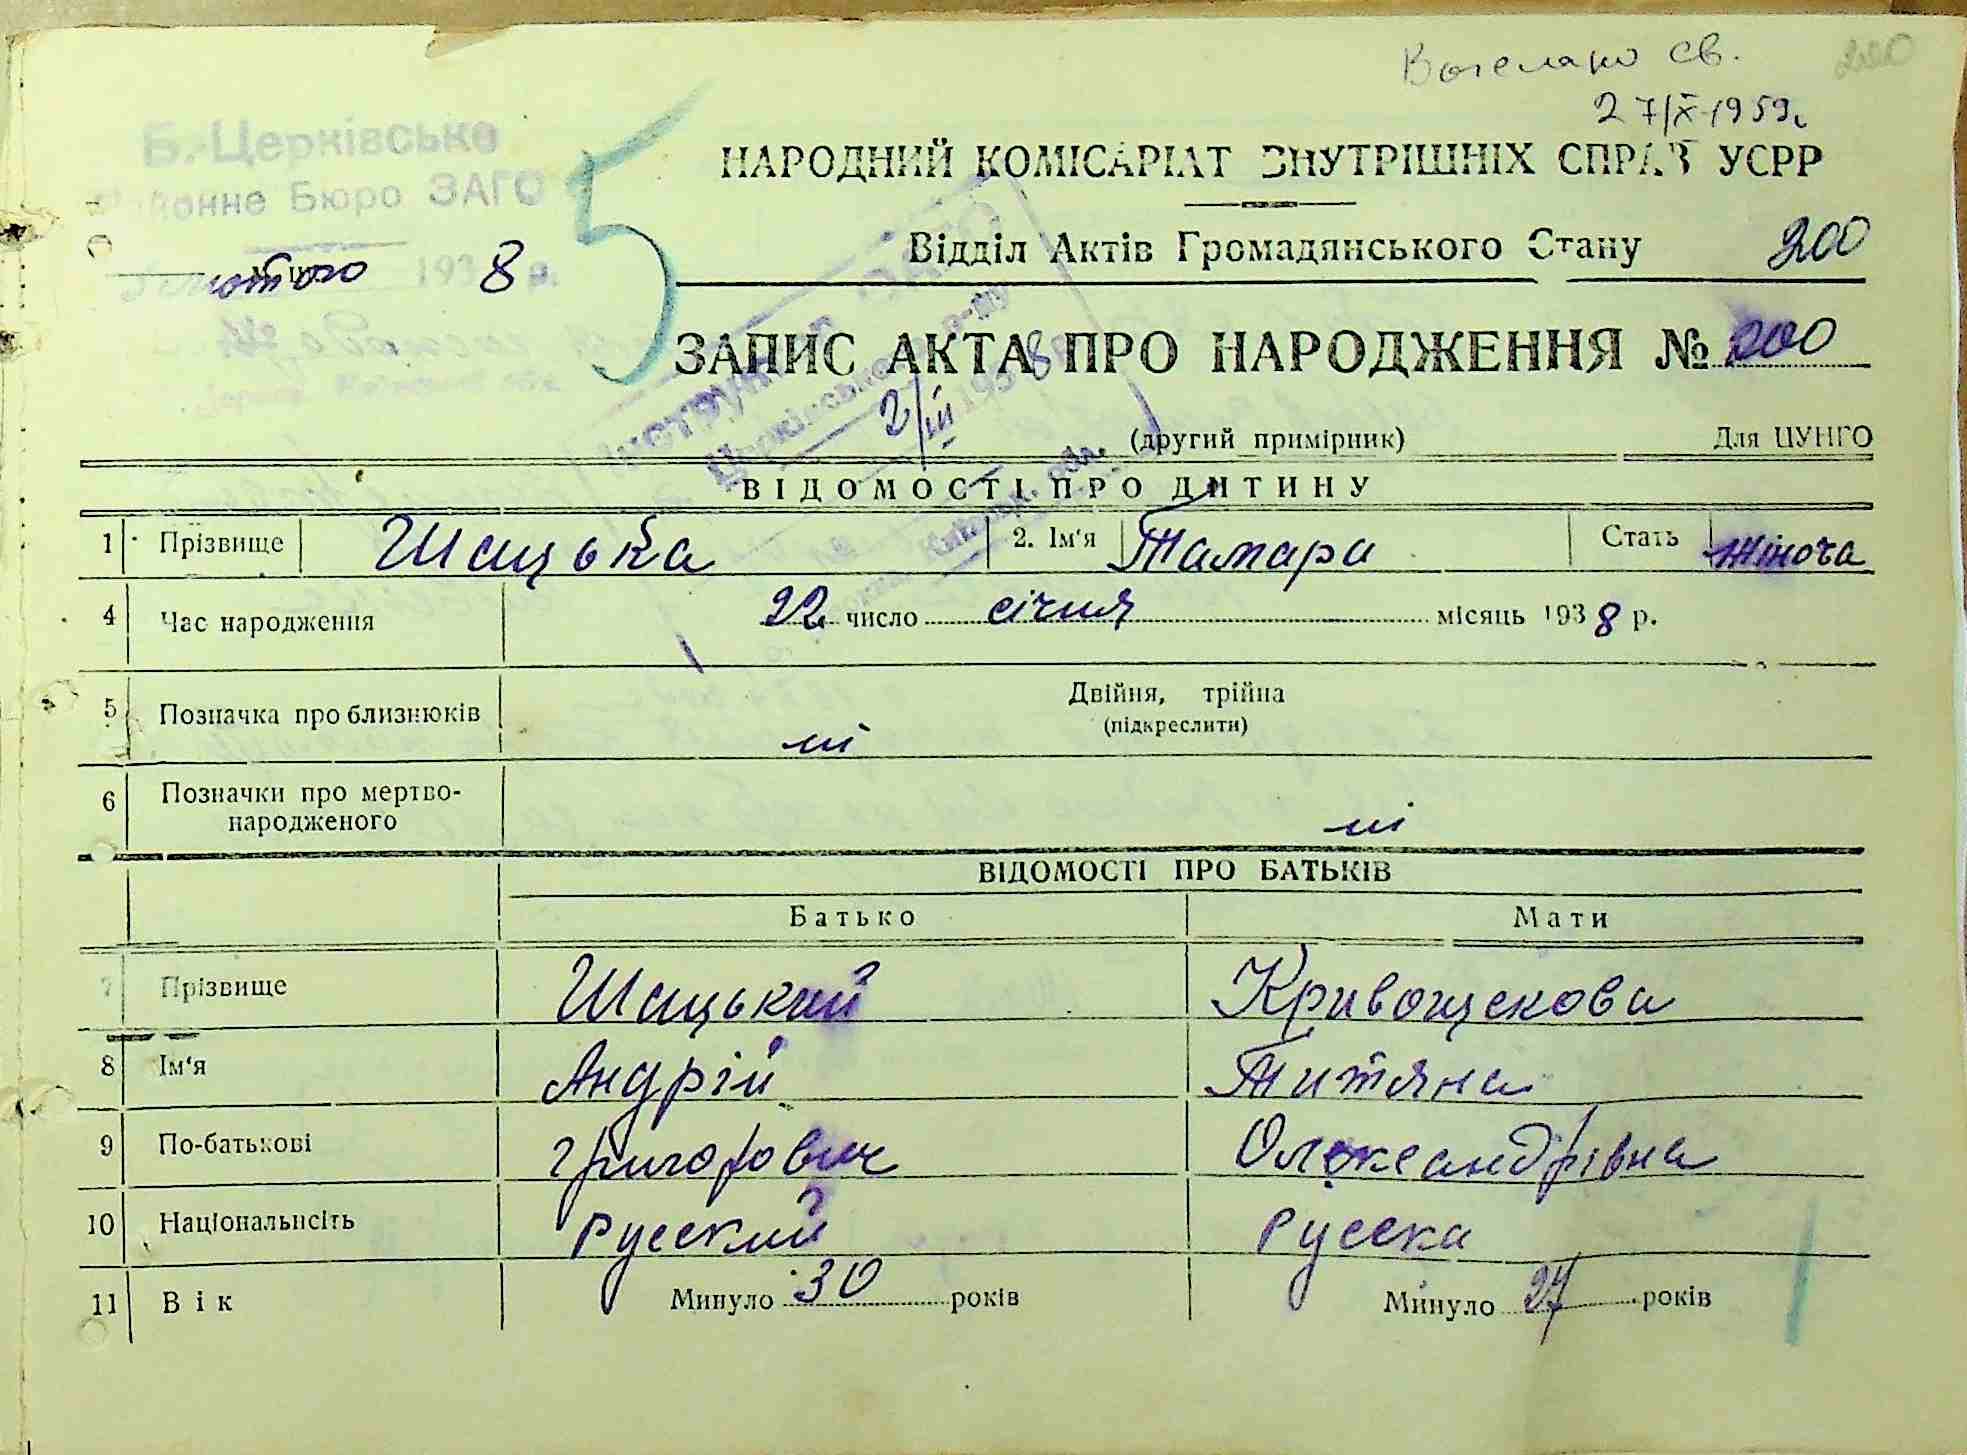 св.
220
27/X-1959г.
Б.-Церківське
Районне Бюро ЗАГС
5
лютого 1938 р.
НАРОДНИЙ КОМІСАРІАТ ВНУТРІШНІХ СПРАВ УСРР
Відділ Актів Громадянського Стану 200
ЗАПИС АКТА ПРО НАРОДЖЕННЯ № 200
2/III 1938
(другий примірник) Для ЦУНГО
ВІДОМОСТІ ПРО ДИТИНУ
1 Прізвище Шацька 2. Ім'я Тамара Стать жіноча
4 Час народження 22 число січня місяць 1938 р.
5 Позначка про близнюків Двійня, трійна
(підкреслити)
ні
6 Позначки про мертво-
народженого ні
ВІДОМОСТІ ПРО БАТЬКІВ
Батько Мати
7 Прізвище Шацький Кривощекова
8 Ім'я Андрій Титяна
9 По-батькові Григорович Олександрівна
10 Національність Русский Русска
11 Вік Минуло 30 років Минуло 27 років